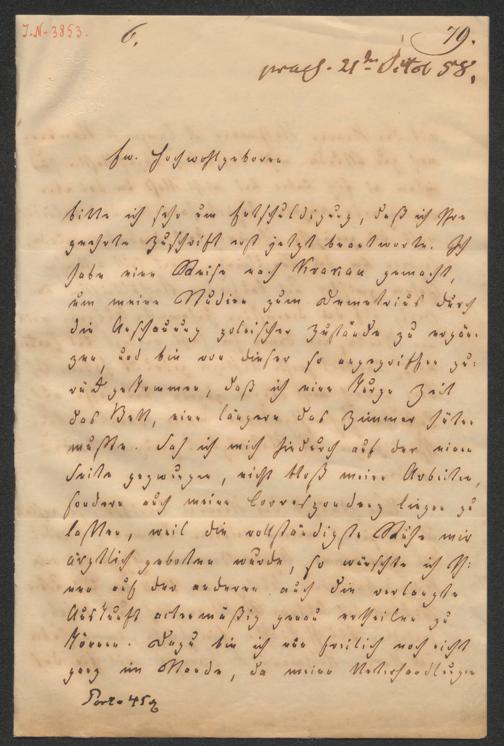 I.N. 3853.
6.
79.
21ten Octob 58.
Ew. Hochwohlgeboren
bitte ich sehr um Entschuldigung, daß ich Ihre
geehrte Zuschrift erst jetzt beantworte. Ich
habe eine Reise nach Krakau gemacht,
um meine Studien zum Demetrius durch
die Anschauung polnischer Zustände zu ergän-
zen, und bin von dieser so angegriffen zu-
rück gekommen, daß ich eine kurze Zeit
das Bett, eine längere das Zimmer hüten
mußte. Sah ich mich hiedurch auf der einen
Seite gezwungen, nicht bloß meine Arbeiten,
sondern auch meine Correspondenz liegen zu
lassen, weil die vollständigste Ruhe mir
ärztlich geboten wurde, so wünschte ich Ih-
nen auf der anderen auch die verlangte
Auskunft actenmäßig genau ertheilen zu
können. Dazu bin ich nun freilich noch nicht
ganz im Stande, da meine Unterhandlungen
Porto 45